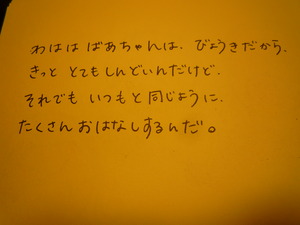 わはは ばあちゃんは、びょうきだから、
きっと とてもしんどいんだけど、
それでも いつもと同じように、
たくさん おはなしするんだ。